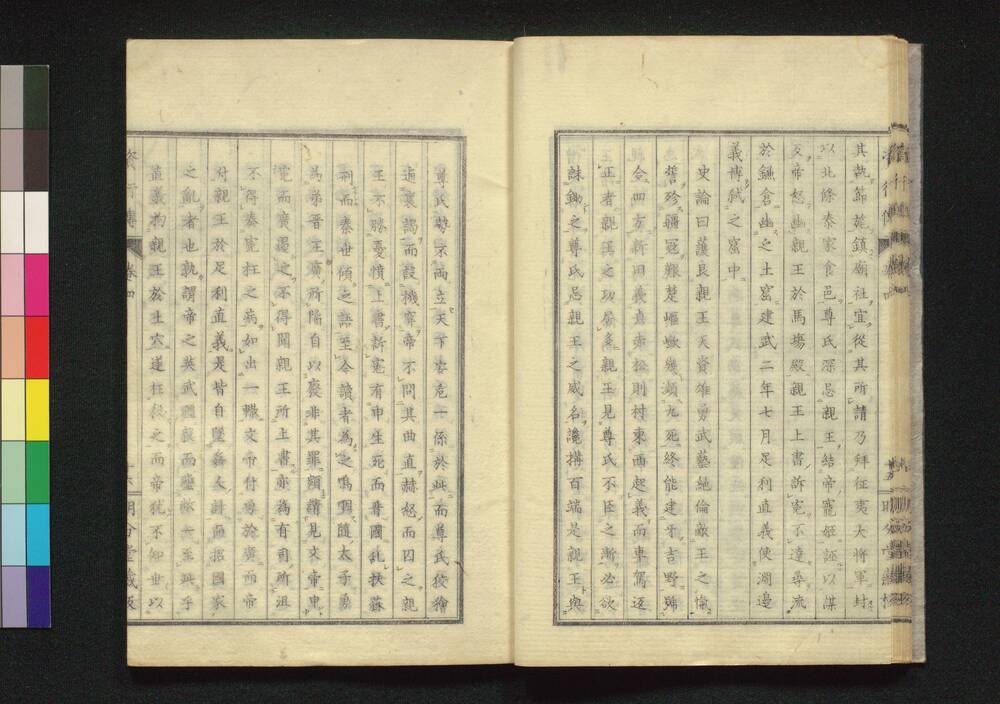 其執節莅鎮廟社宜從其所請乃拜征夷大將軍封
以北條泰家食邑尊氏深忌親王結帝寵姬誣以謀
反帝怒幽親王於馬場殿親王上書訴寃不達尋流
於鎌倉幽之土窟建武二年七月足利直義使淵邊
義博弑之窟中
史論曰護良親王天資雄勇武藝絶倫敵王之愾
誓殄疆寇艱楚嶇嶔幾瀕九死終能建牙吉野歸
令四方新田義貞赤松則村東西起義而車駕返
正者親王之功居多親王見尊氏不臣之漸必欲
誅鋤之尊氏忌親王之威名讒搆百端是親王與
尊氏勢不兩立天下安危一係於此而尊氏狡獪
通裏謁而設機穽帝不問其曲直赫怒而囚之親
王不勝憂憤上書訴寃有申生死而晋國亂扶蘇
刑而秦世傾之語至今讀者為之嗚咽隨太子勇
為晋王廣所陷自以廢非其罪頻請見文帝申
寃而廣遏之不得聞親王所上書亦為有司所沮
不得奏寃枉之病如出一轍文帝付勇於廣而帝
付親王於足利直義是皆自墮姦人計而招國家
之亂者也孰謂帝之英武
直義拘親王於土穴遂枉殺之而帝猶不知世以
卷四
明分堂藏版